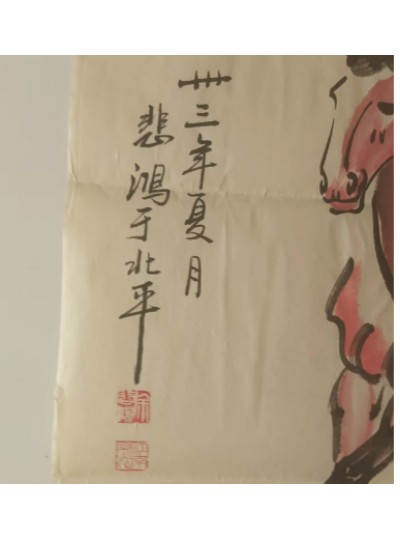 卌三年夏月
悲鴻于北平